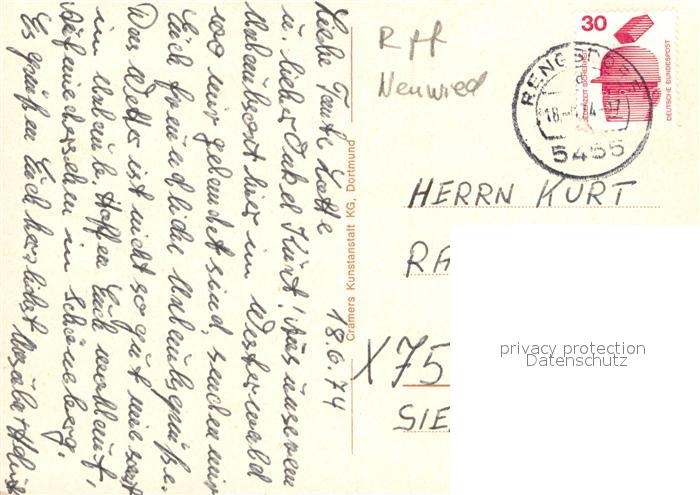 Liebe Tante Lotte
18.6.74
u. lieber Onkel Kurt! Aus unserem
Urlaubsort hier im Westerwald
wo wir gelandet sind, senden wir
Euch freundliche Urlaubsgrüße.
Das Wetter ist nicht so gut wie sonst
im Urlaub. Hoffen Euch wohlauf,
Auf wiedersehen in Schöneberg.
Es grüßen Euch herzlichst
Cramers Kunstanstalt KG, Dortmund
Neuwied
30
JEDERZEIT SICHERHEIT
DEUTSCHE BUNDESPOST
RENGSDORF
5455
HERRN KURT
RA
X75
SIE
privacy protection
Datenschutz